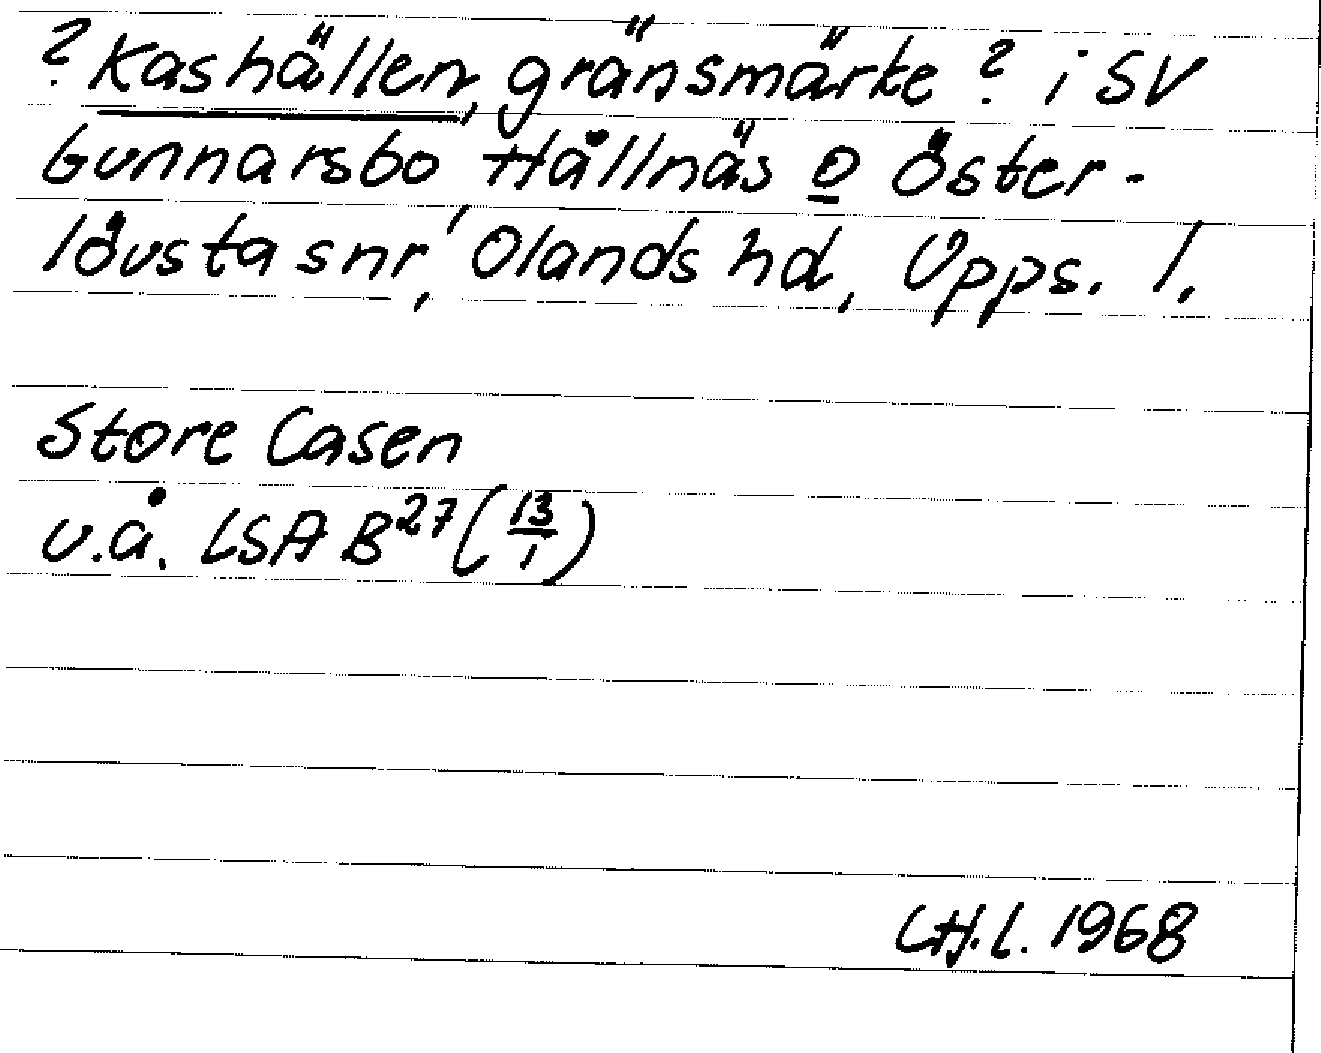 ? Kashällen, gränsmärke? i SV
Gunnarsbo, Hållnäs o Öster-
lövsta snr, Olands hd, Upps. l.
Store Casen
u.å. LSA B27 (13/1)
C.H.L. 1968